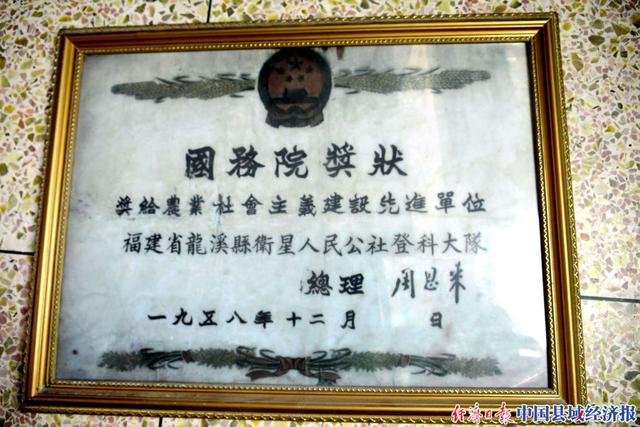 國務院獎狀
獎給農業社會主義建設先進單位
福建省龍溪縣衛星人民公社登科大隊
總理 周恩来
一九五八年十二月 日
经济日报 中国县域经济报